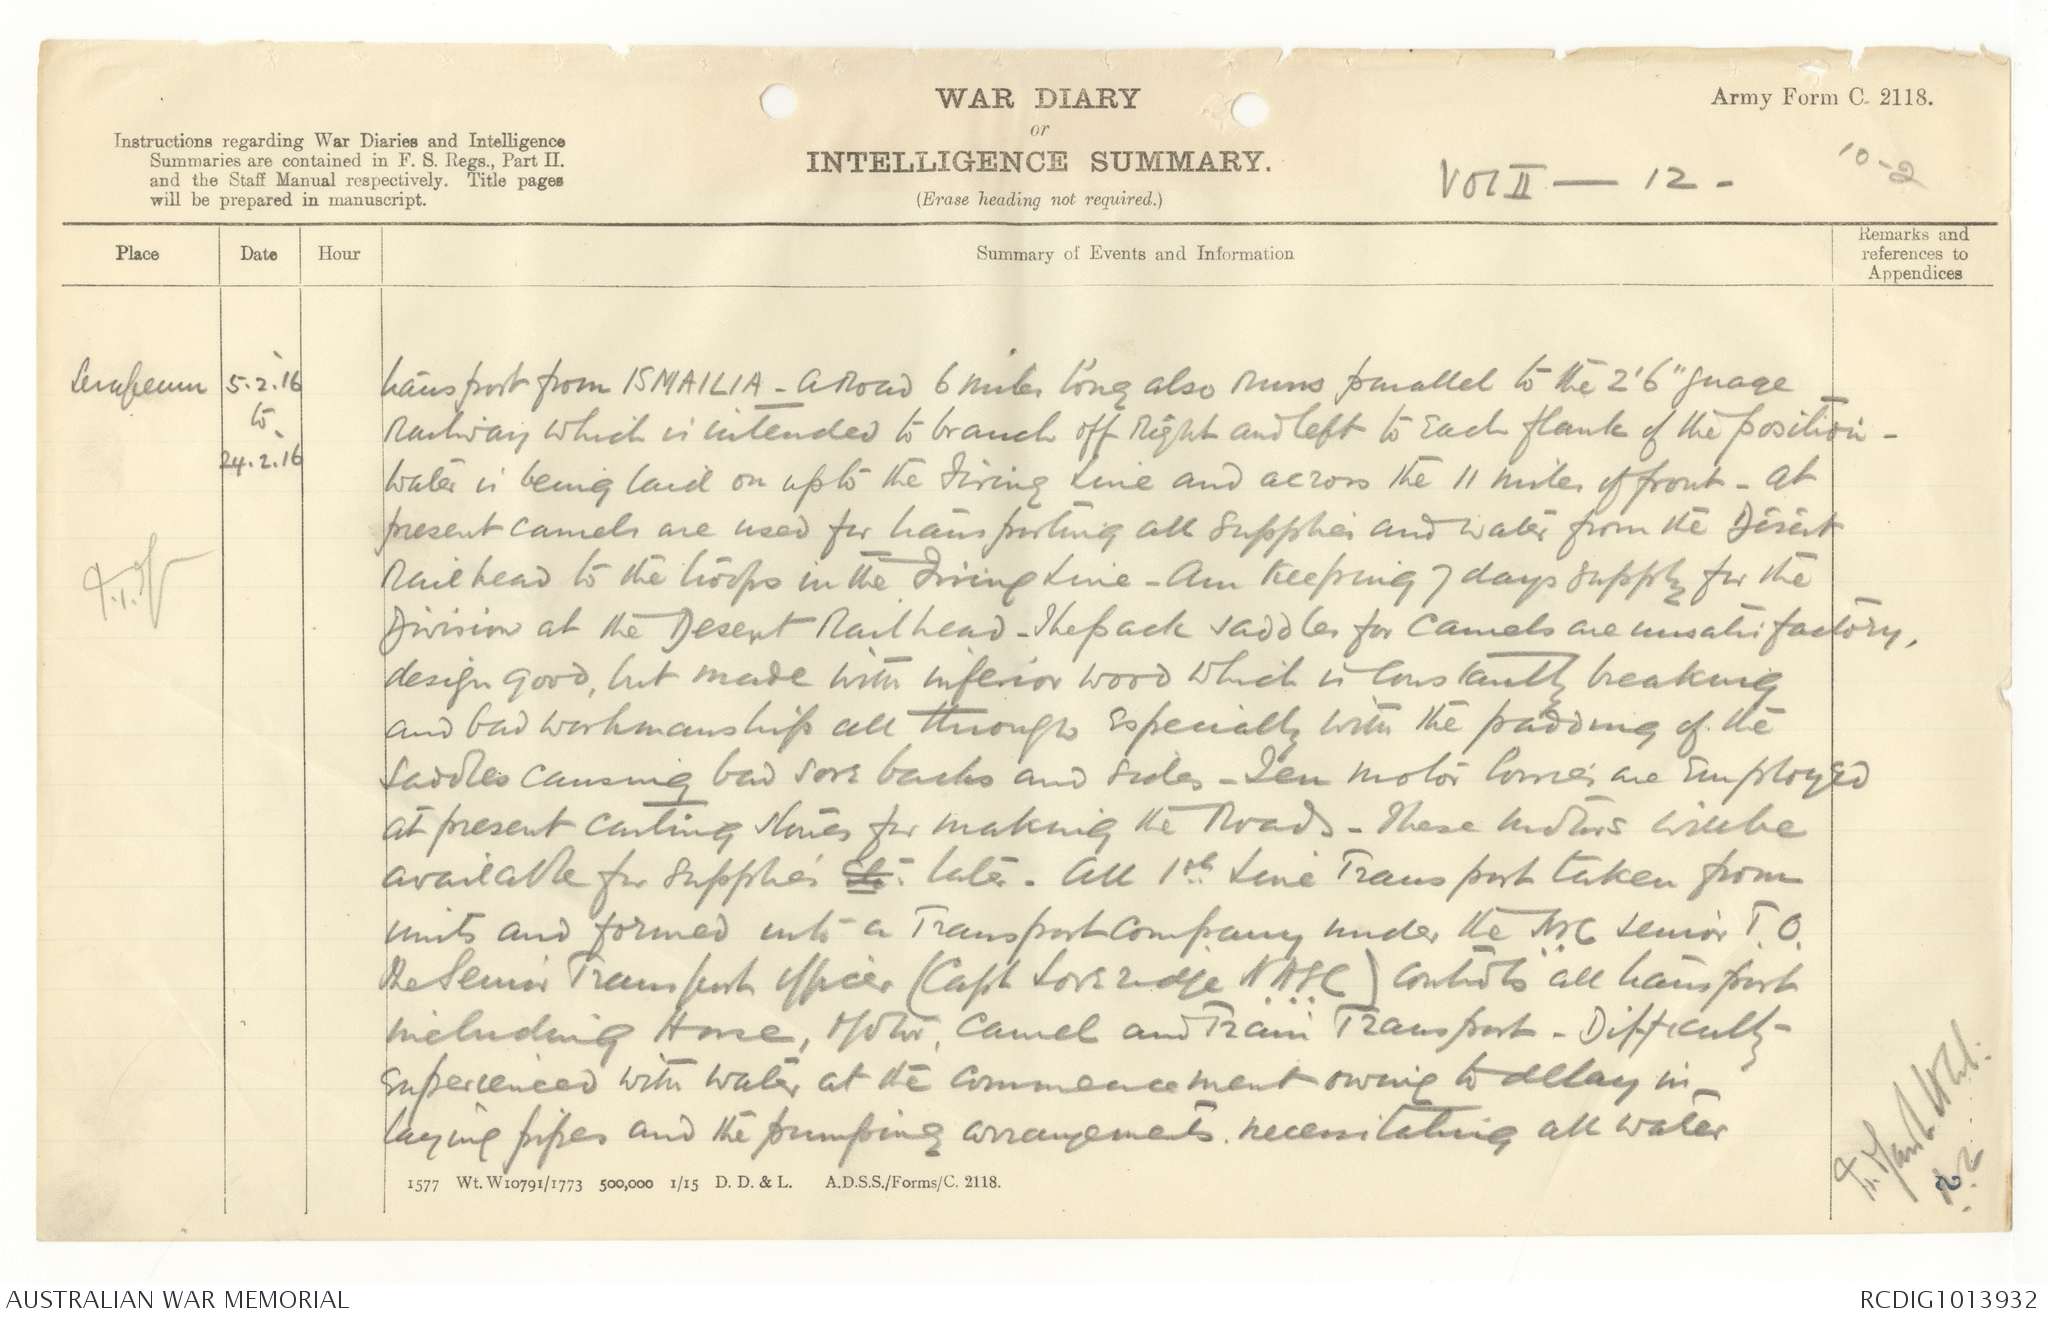 WAR DIARY
or
INTELLIGENCE SUMMARY.
(Erase heading not required.)
Army Form C. 2118.
Instructions regarding War Diaries and Intelligence
Summaries are contained in F. S. Regs., Part II.
and the Staff Manual respectively. Title pages
will be prepared in manuscript.
Vol II — 12 -
10-2
Place
Date
Hour
Summary of Events and Information
Remarks and
references to
Appendices
Serapeum
5.2.16
to
24.2.16
transport from ISMAILIA - a Road 6 miles long also runs parallel to the 2'6" guage
Railway which is intended to branch off Right and left to Each flank of the position -
water is being laid on up to the Firing Line and across the 11 miles of front - at
present camels are used for transporting all supplies and water from the Desert
Railhead to the troops in the Firing Line - Am Keeping 7 days supply for the
Division at the Desert Railhead - The pack saddles for camels are unsatisfactory,
design good, but made with inferior wood which is constantly breaking
and bad workmanship all through Especially with the padding of the
saddles causing bad sore backs and sides - Ten motor lorries are Employed
at present carting stones for making the Roads - These motors will be
available for supplies etc. later. All 1st Line Transport taken from
units and formed into a Transport Company under the Senior T.O.
The Senior Transport officer (Capt Loveridge AASC) controls all transport
including Horse, Motor, Camel and Train Transport - Difficulty
experienced with water at the commencement owing to delay in
laying pipes and the pumping arrangements. necessitating all water
1577 Wt. W10791/1773 500,000 1/15 D. D. & L. A.D.S.S./Forms/C. 2118.
AUSTRALIAN WAR MEMORIAL
RCDIG1013932